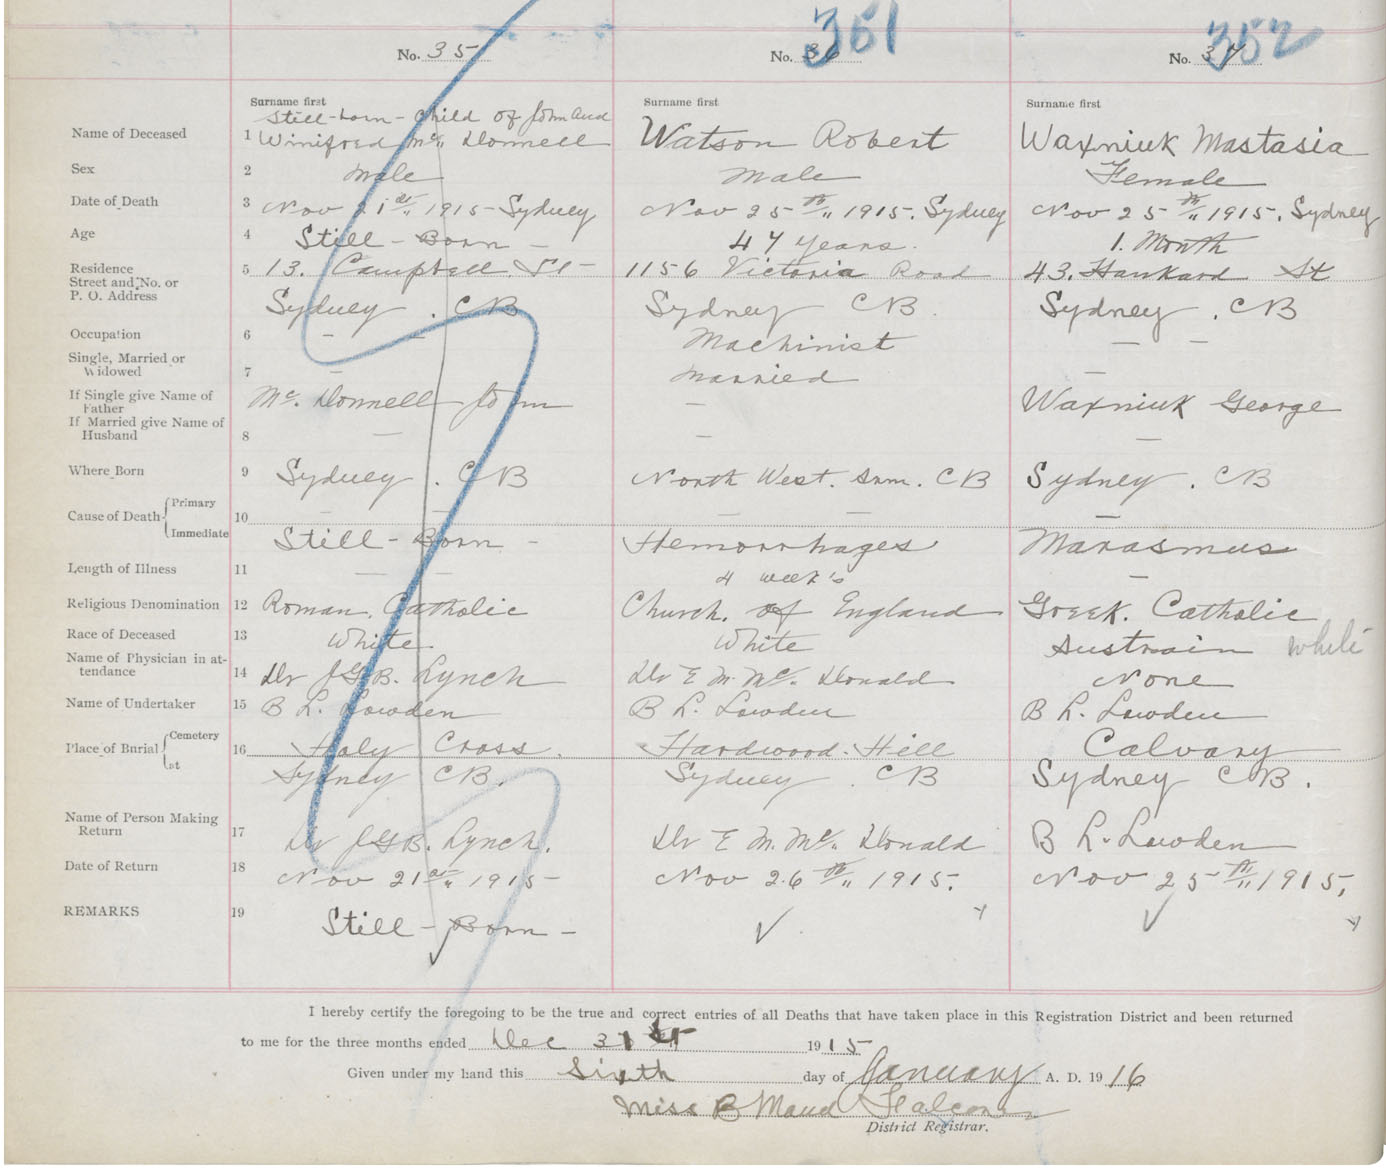 351
352
No. 35
No. 36
No. 37
Surname first
Surname first
Surname first
Still-born-Child of John and
Name of Deceased 1 Winifred Mc. Donnell Watson Robert Waxniuk Mastasia
Sex 2 Male Male Female
Date of Death 3 Nov 21st 1915-Sydney Nov 25th 1915. Sydney Nov 25th 1915. Sydney
Age 4 Still-Born- 47 Years. 1. Month
Residence 5 13. Campbell St- 1156 Victoria Road 43. Hankard St
Street and No. or
P. O. Address Sydney. CB Sydney CB. Sydney. CB
Occupation 6 - - Machinist - -
Single, Married or
Widowed 7 - Married -
If Single give Name of
Father Mc. Donnell John - Waxniuk George
If Married give Name of
Husband 8 - - -
Where Born 9 Sydney. CB North West. Arm. CB Sydney. CB
Cause of Death Primary 10 - - - - -
Immediate Still-Born- Hemorrhages Marasmus
Length of Illness 11 - - 4 week's -
Religious Denomination 12 Roman. Catholic Church. of England Greek. Catholic
Race of Deceased 13 White. White Austrain white
Name of Physician in at-
tendance 14 Dr J G B. Lynch Dr E M. Mc. Donald None
Name of Undertaker 15 B L. Lowden B L. Lowden B L. Lowden
Place of Burial Cemetery 16 Holy Cross. Hardwood-Hill Calvary
at Sydney CB. Sydney. CB Sydney CB.
Name of Person Making
Return 17 Dr J G B. Lynch. Dr E M. Mc. Donald B L. Lowden
Date of Return 18 Nov 21st 1915- Nov 26th 1915. Nov 25th 1915,
REMARKS 19 Still-Born-
I hereby certify the foregoing to be the true and correct entries of all Deaths that have taken place in this Registration District and been returned
to me for the three months ended Dec 31st 1915
Given under my hand this Sixth day of January A. D. 1916
Miss B Maud Falconer
District Registrar.